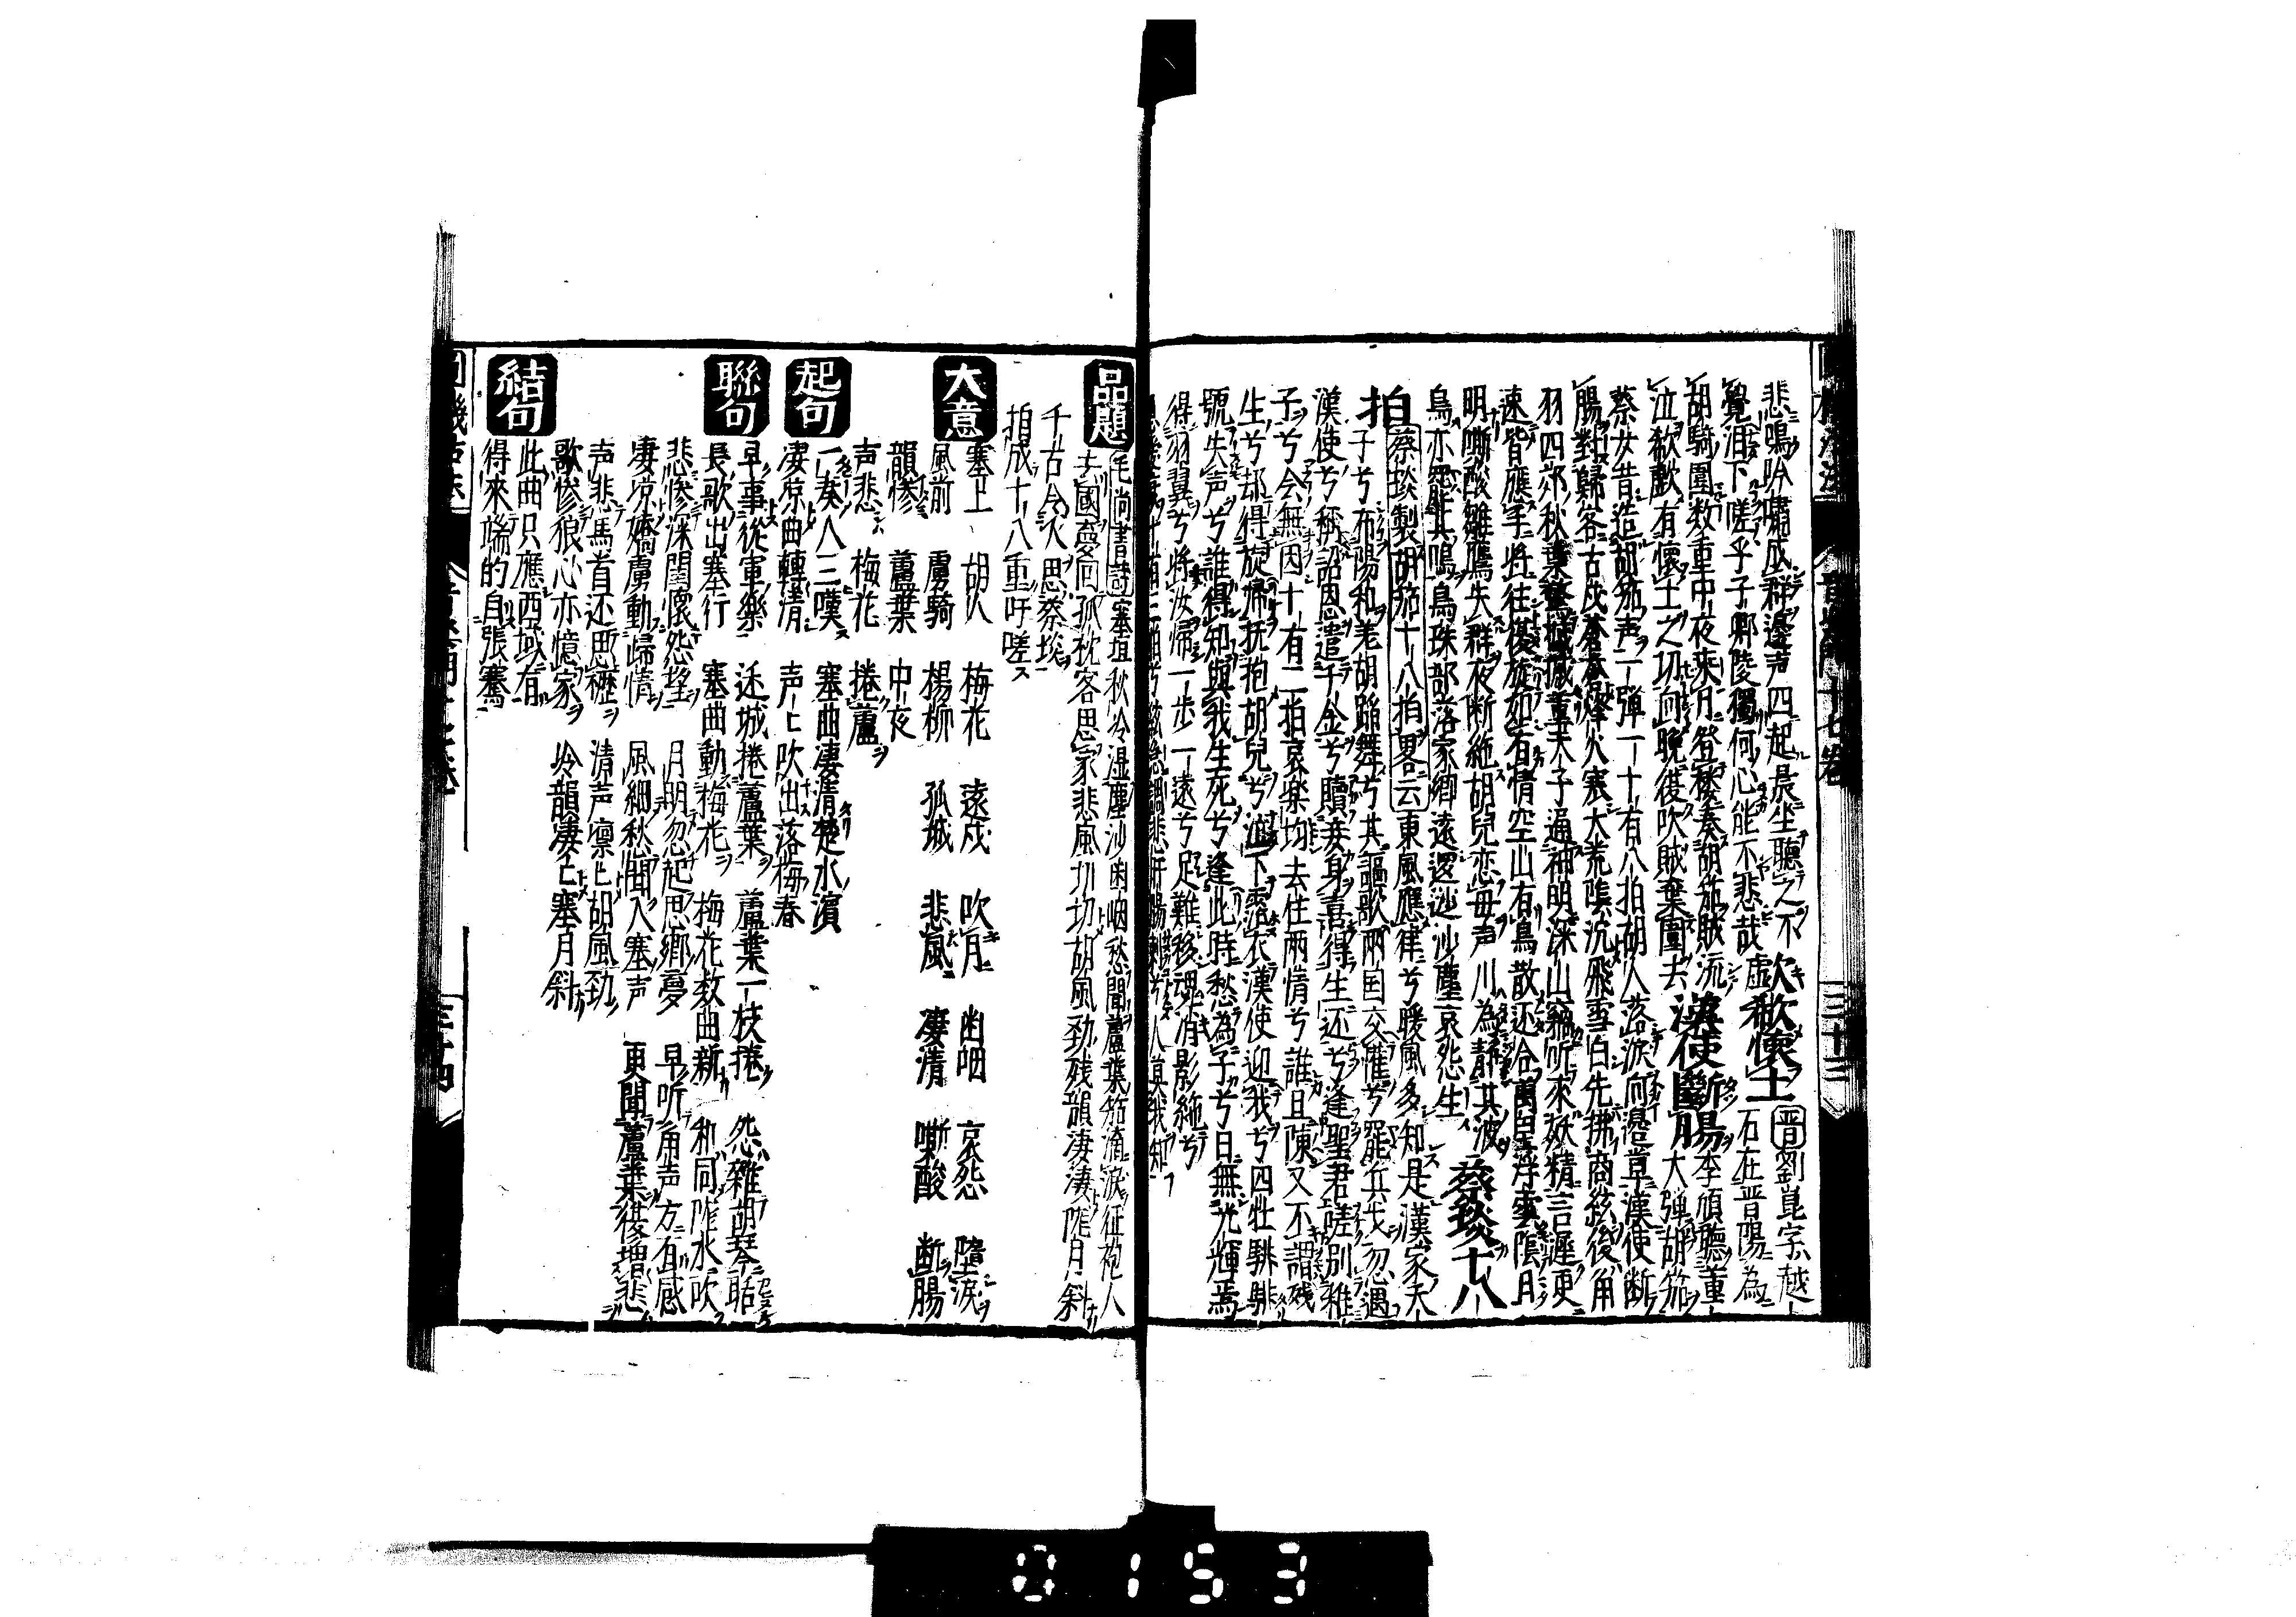 悲鳴吟嘯成群邊声四起晨坐聽之不欷歔懷土晋劉崑字越
覺泪下嗟乎子卿陵獨何心能不悲哉歔石在晋陽為
胡騎圍数重中夜來月登樓奏胡笳賊流漢使斷腸李頎聽董
泣欷歔有懷土之切向曉復吹賊棄圍去大弾胡笳
蔡女昔造胡笳声一弾一十有八拍胡人落淚向邉草漢使断
腸對歸客古戍蒼蒼烽火寒大荒陰沉飛雪白先拂商絃後角
羽四郊秋葉驚摵摵董夫子通神明深山竊听來妖精言遲更
速皆應手将往復旋如有情空山百鳥散还合萬里浮雲陰且
明嘶酸雛鴈失群夜断絶胡兒恋毋声川為静其波蔡琰十八
鳥亦罷其鳴烏珠部落家鄉遠邏迯沙塵哀怨生
拍蔡琰製胡笳十八拍畧云東風應律兮暖風多知是漢家天
子兮布陽和羌胡蹈舞兮其謳歌兩国交懽兮罷兵戈忽遇
漢使兮稱詔恩遣千金兮贖妾身喜得生还兮逢聖君嗟别稚
子兮会無因十有二拍哀楽均去住兩情兮誰且陳又不謂残
生兮却得旋帰抚抱胡兒兮泣下霑衣漢使迎我兮四牡騑騑
號失声兮誰得知與我生死兮逢此時愁為子兮日無光輝焉
得羽翼兮将汝帰一步一遠兮足難移魂消影絶兮
品題毛尚書詩塞垣秋冷湿塵沙幽咽愁聞蘆葉笳滴淚征袍人
去國夢回孤枕客思家悲風切切胡風勁残韻淒淒隴月斜
千古令人思蔡琰
拍成十八重吁嗟
大意塞上　胡人　梅花　遠戍　吹月　幽咽　哀怨　墮淚
風前　虜騎　楊柳　孤城　悲風　凄清　嘶酸　断腸
韻惨　蘆葉　中夜
声悲　梅花　捲蘆
起句一奏人三嘆　塞曲凄清楚水濱
凄凉曲轉清　声匕吹出落梅春
聯句早事從軍樂　近城捲蘆葉　蘆葉一枝捲　怨雜胡琴聒
長歌出塞行　塞曲動梅花　梅花数曲新　和同隴水吹
悲惨深閨懷怨望　月明忽起思鄉夢　早听角声方有感
凄凉嬌虜動歸情　風細愁聞入塞声　更聞蘆葉復増悲
声悲馬首还思櫪　清声凛匕胡風勁
歌惨狼心亦憶家　冷韻凄匕塞月斜
結句此曲只應西域有
得來端的自張騫
十七巻
三十三
三十四
0153